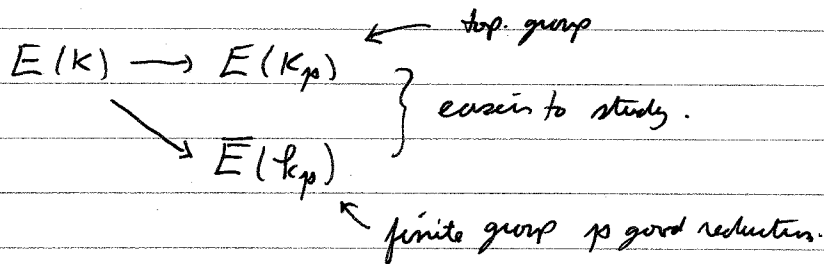 top. group
E(K) → E(K_p)
} easier to study.
Ē(k_p)
finite group p good reduction.